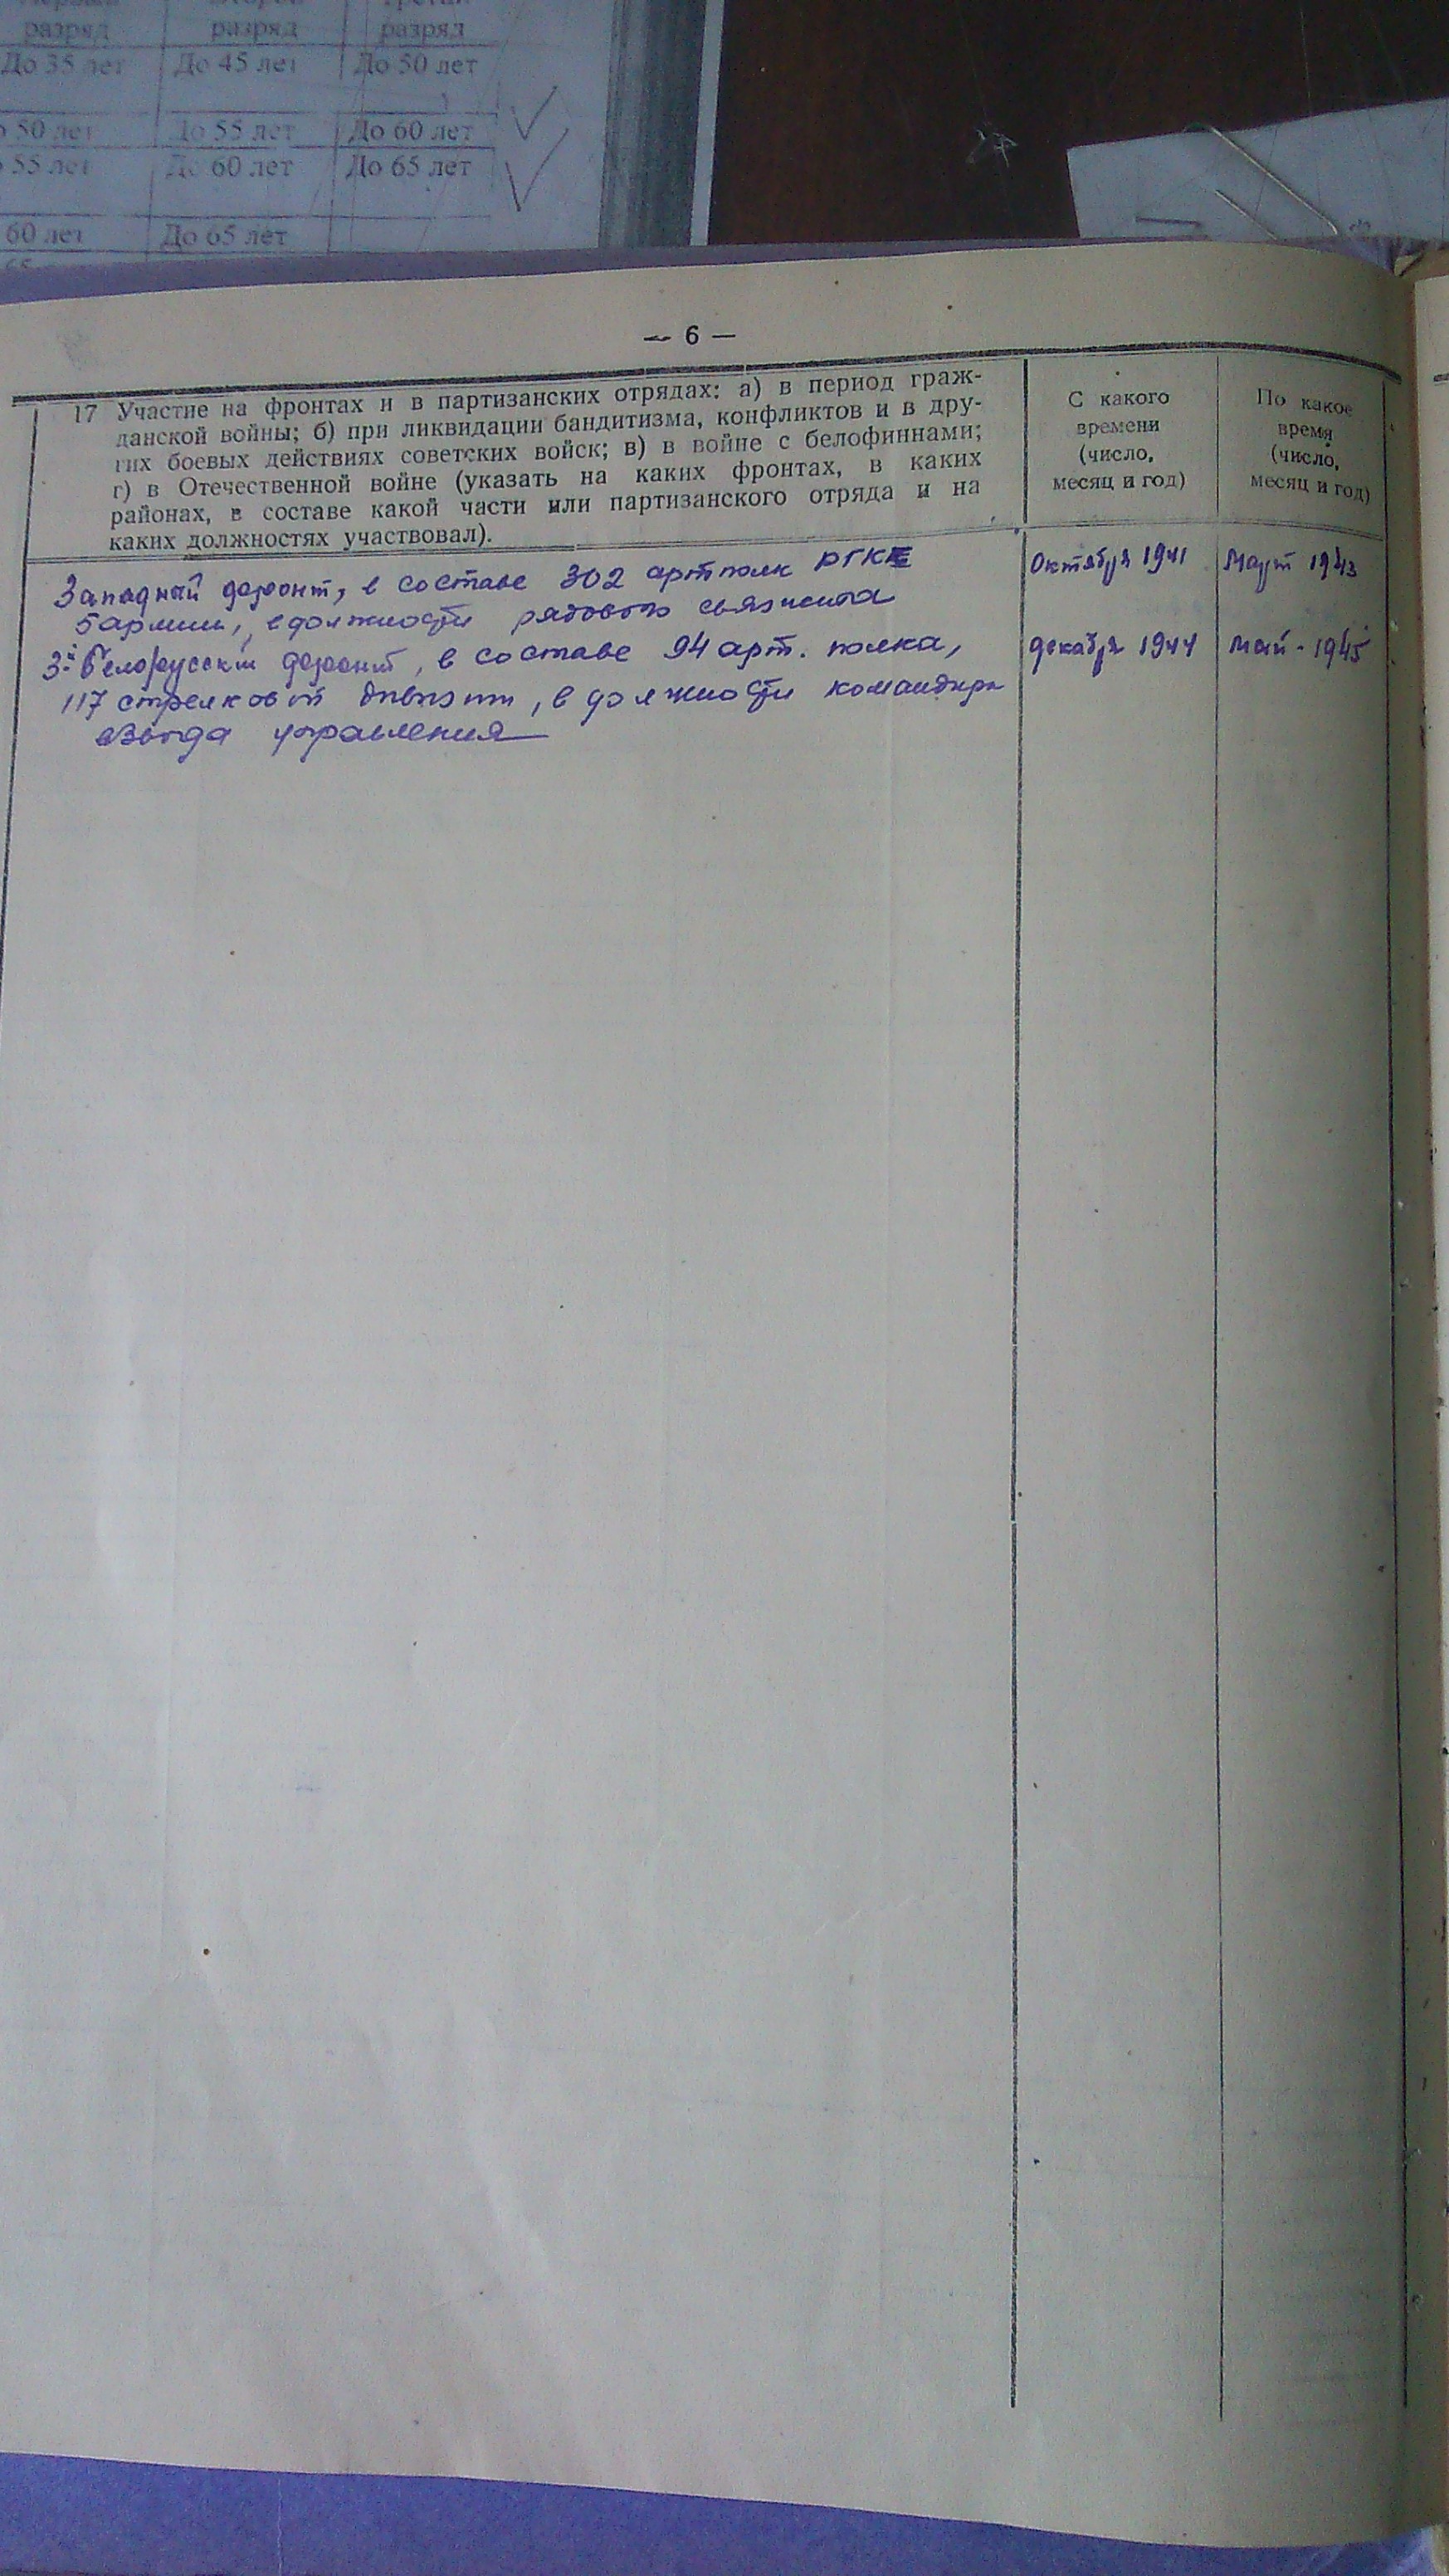 разряд разряд разряд
До 35 лет До 45 лет До 50 лет
50 лет До 55 лет До 60 лет
55 лет До 60 лет До 65 лет
60 лет До 65 лет
— 6 —
17 Участие на фронтах и в партизанских отрядах: а) в период граж-
данской войны; б) при ликвидации бандитизма, конфликтов и в дру-
гих боевых действиях советских войск; в) в войне с белофиннами;
г) в Отечественной войне (указать на каких фронтах, в каких
районах, в составе какой части или партизанского отряда и на
каких должностях участвовал).
С какого
времени
(число,
месяц и год)
По какое
время
(число,
месяц и год)
Западный фронт, в составе 302 артполк РГК Октября 1941 Март 1943
5 армии, в должности рядового связиста
3й Белорусский фронт, в составе 94 арт. полка, декабря 1944 Май - 1945
117 стрелковой дивизии, в должности командира
взвода управления